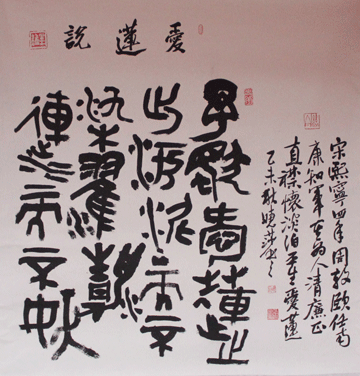 愛蓮說
予獨愛蓮之
出淤泥而不
染濯清
漣而不妖
宋熙寧四年周敦頤任南
康知軍其為人清廉正
直襟懷淡泊平生愛蓮
乙未秋